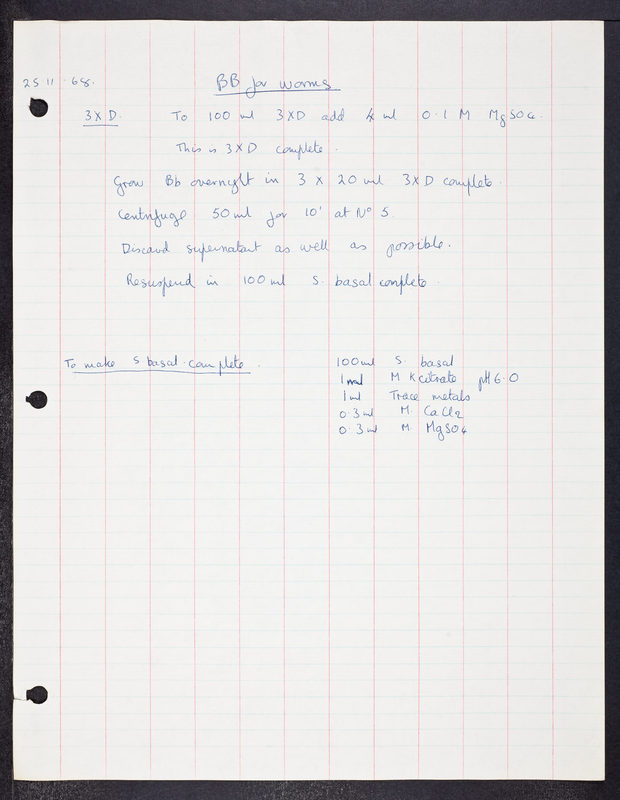 25 11 · 68.
BB for worms
3 X D. To 100 ml 3XD add 4 ml 0.1 M MgSO4.
This is 3XD complete.
Grow Bb overnight in 3 X 20 ml 3XD complete.
Centrifuge 50 ml for 10' at No 5.
Discard supernatant as well as possible.
Resuspend in 100 ml S. basal complete
To make S basal complete.
100 ml S. basal
1 ml M K citrate pH 6.0
1 ml Trace metals
0.3 ml M. CaCl2
0.3 ml M. MgSO4